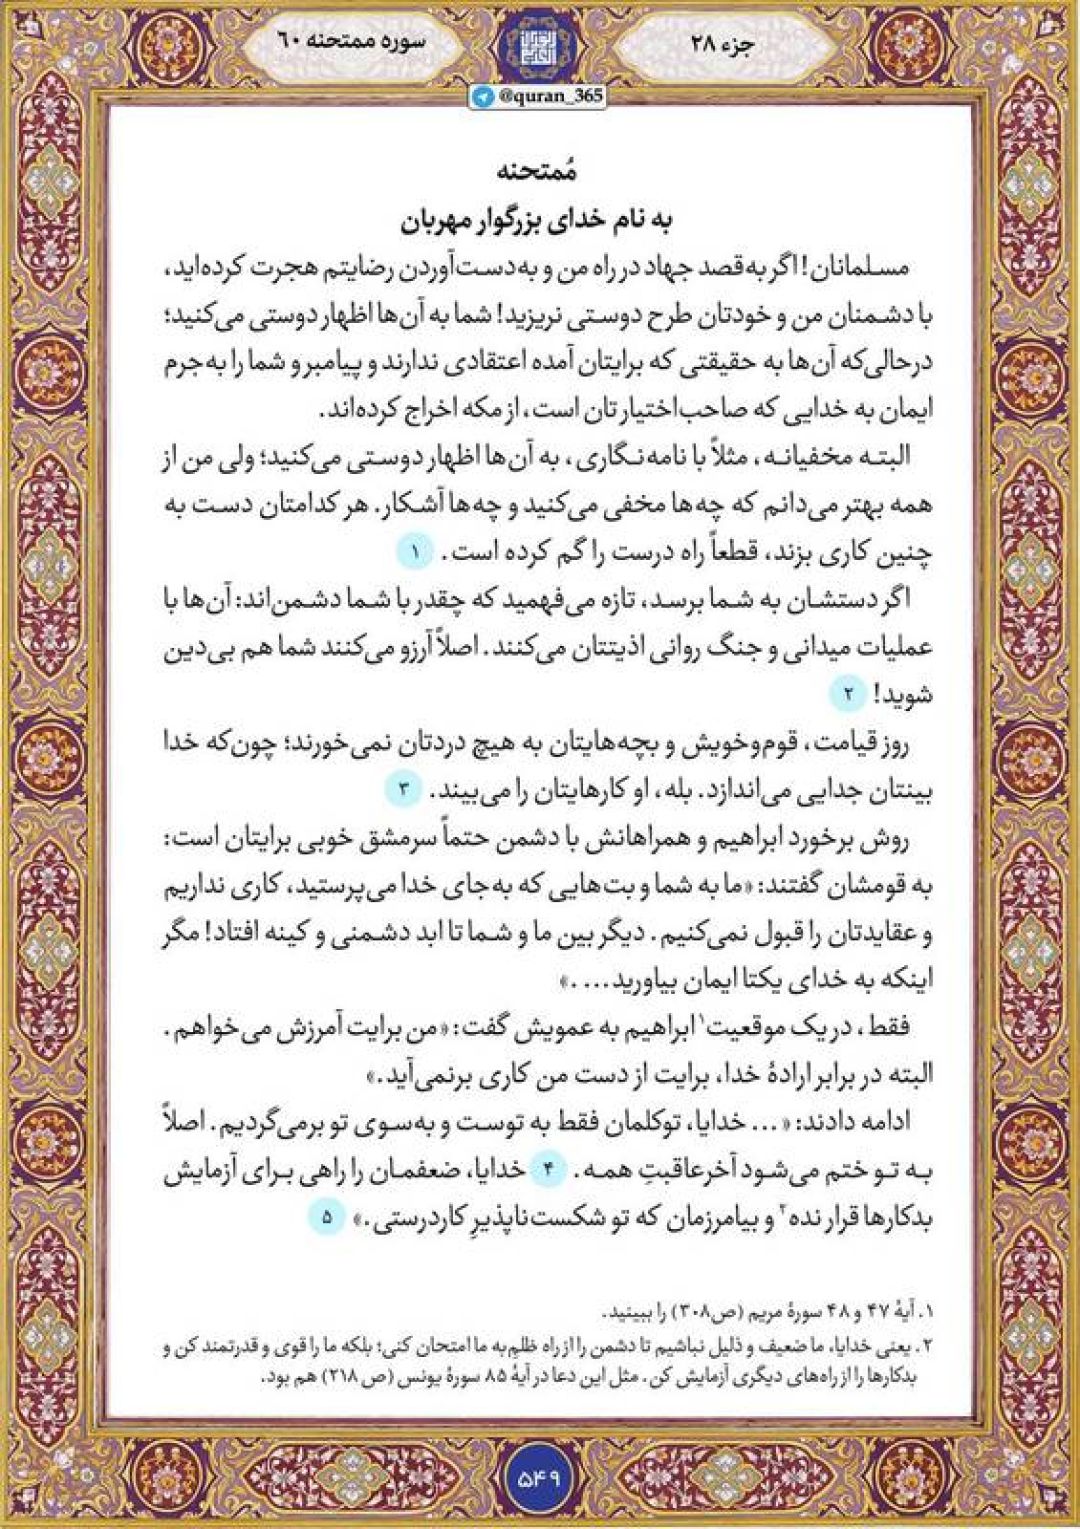 جزء ۲۸
سوره ممتحنه ۶۰
@quran_365
مُمتحنه
به نام خدای بزرگوار مهربان
مسلمانان! اگر به قصد جهاد در راه من و به‌دست‌آوردن رضایتم هجرت کرده‌اید،
با دشمنان من و خودتان طرح دوستی نریزید! شما به آن‌ها اظهار دوستی می‌کنید؛
درحالی‌که آن‌ها به حقیقتی که برایتان آمده اعتقادی ندارند و پیامبر و شما را به‌جرم
ایمان به خدایی که صاحب‌اختیارتان است، از مکه اخراج کرده‌اند.
البته مخفیانه، مثلاً با نامه‌نگاری، به آن‌ها اظهار دوستی می‌کنید؛ ولی من از
همه بهتر می‌دانم که چه‌ها مخفی می‌کنید و چه‌ها آشکار. هر کدامتان دست به
چنین کاری بزند، قطعاً راه درست را گم کرده است. ۱
اگر دستشان به شما برسد، تازه می‌فهمید که چقدر با شما دشمن‌اند: آن‌ها با
عملیات میدانی و جنگ روانی اذیتتان می‌کنند. اصلاً آرزو می‌کنند شما هم بی‌دین
شوید! ۲
روز قیامت، قوم‌وخویش و بچه‌هایتان به هیچ دردتان نمی‌خورند؛ چون‌که خدا
بینتان جدایی می‌اندازد. بله، او کارهایتان را می‌بیند. ۳
روش برخورد ابراهیم و همراهانش با دشمن حتماً سرمشق خوبی برایتان است:
به قومشان گفتند: «ما به شما و بت‌هایی که به‌جای خدا می‌پرستید، کاری نداریم
و عقایدتان را قبول نمی‌کنیم. دیگر بین ما و شما تا ابد دشمنی و کینه افتاد! مگر
اینکه به خدای یکتا ایمان بیاورید....»
فقط، در یک موقعیت۱ ابراهیم به عمویش گفت: «من برایت آمرزش می‌خواهم.
البته در برابر ارادهٔ خدا، برایت از دست من کاری برنمی‌آید.»
ادامه دادند: «... خدایا، توکلمان فقط به توست و به‌سوی تو برمی‌گردیم. اصلاً
به تو ختم می‌شود آخرعاقبتِ همه. ۴ خدایا، ضعفمان را راهی برای آزمایش
بدکارها قرار نده۲ و بیامرزمان که تو شکست‌ناپذیرِ کاردرستی.» ۵
۱. آیهٔ ۴۷ و ۴۸ سورهٔ مریم (ص۳۰۸) را ببینید.
۲. یعنی خدایا، ما ضعیف و ذلیل نباشیم تا دشمن را از راه ظلم‌به ما امتحان کنی؛ بلکه ما را قوی و قدرتمند کن و
بدکارها را از راه‌های دیگری آزمایش کن. مثل این دعا در آیهٔ ۸۵ سورهٔ یونس (ص ۲۱۸) هم بود.
۵۴۹